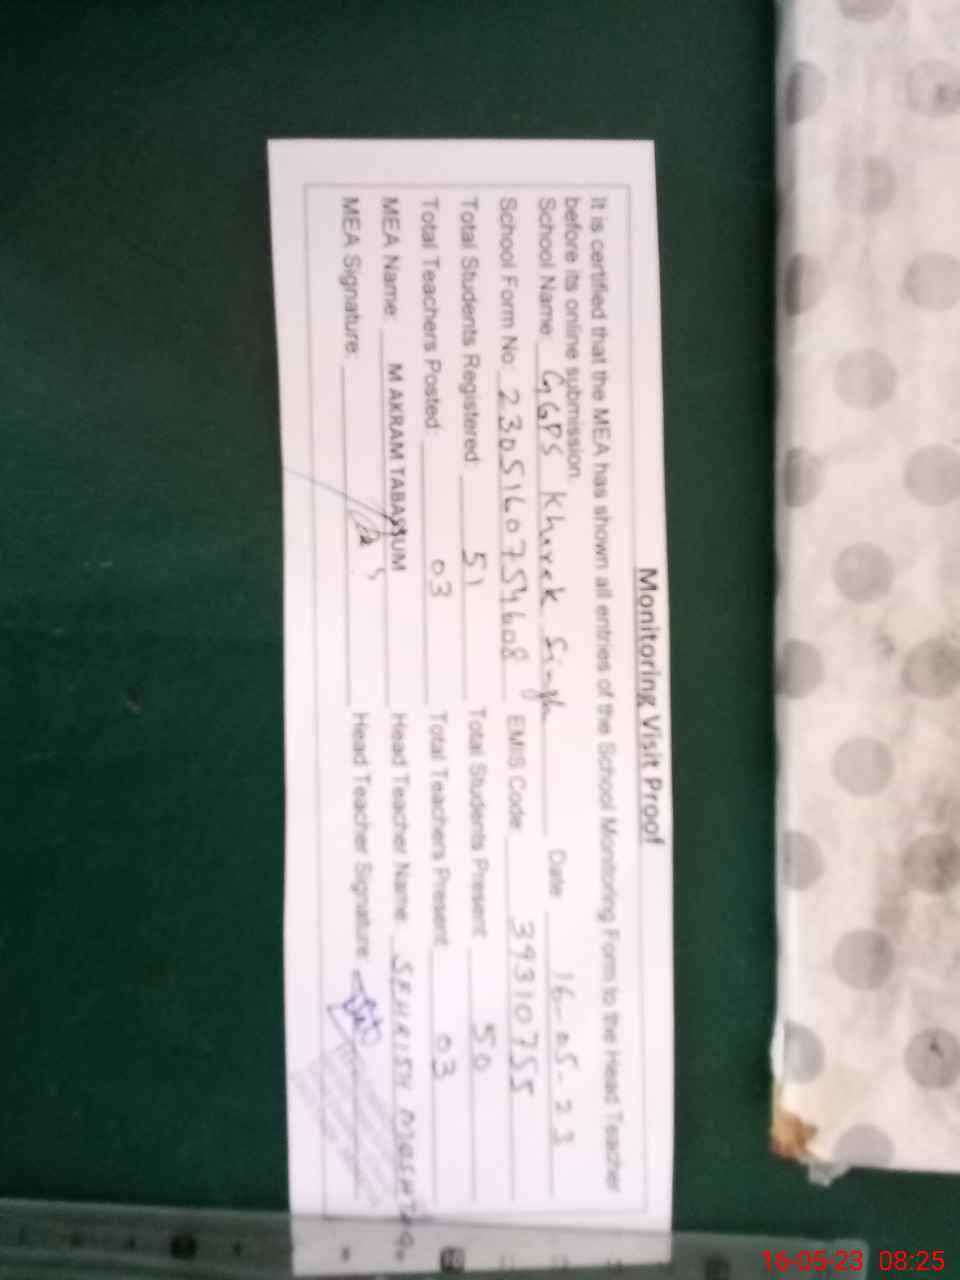 Monitoring Visit Proof
It is certified that the MEA has shown all entries of the School Monitoring Form to the Head Teacher
before its online submission.
School Name: GGPS Kharak Singh Date: 16-05-23
School Form No: 2305160754608 EMIS Code: 39310755
Total Students Registered: 51 Total Students Present: 50
Total Teachers Posted: 03 Total Teachers Present: 03
MEA Name: M AKRAM TABASSUM Head Teacher Name: SEHRISH MUSHTAQ
MEA Signature: Head Teacher Signature:
16-05-23 08:25